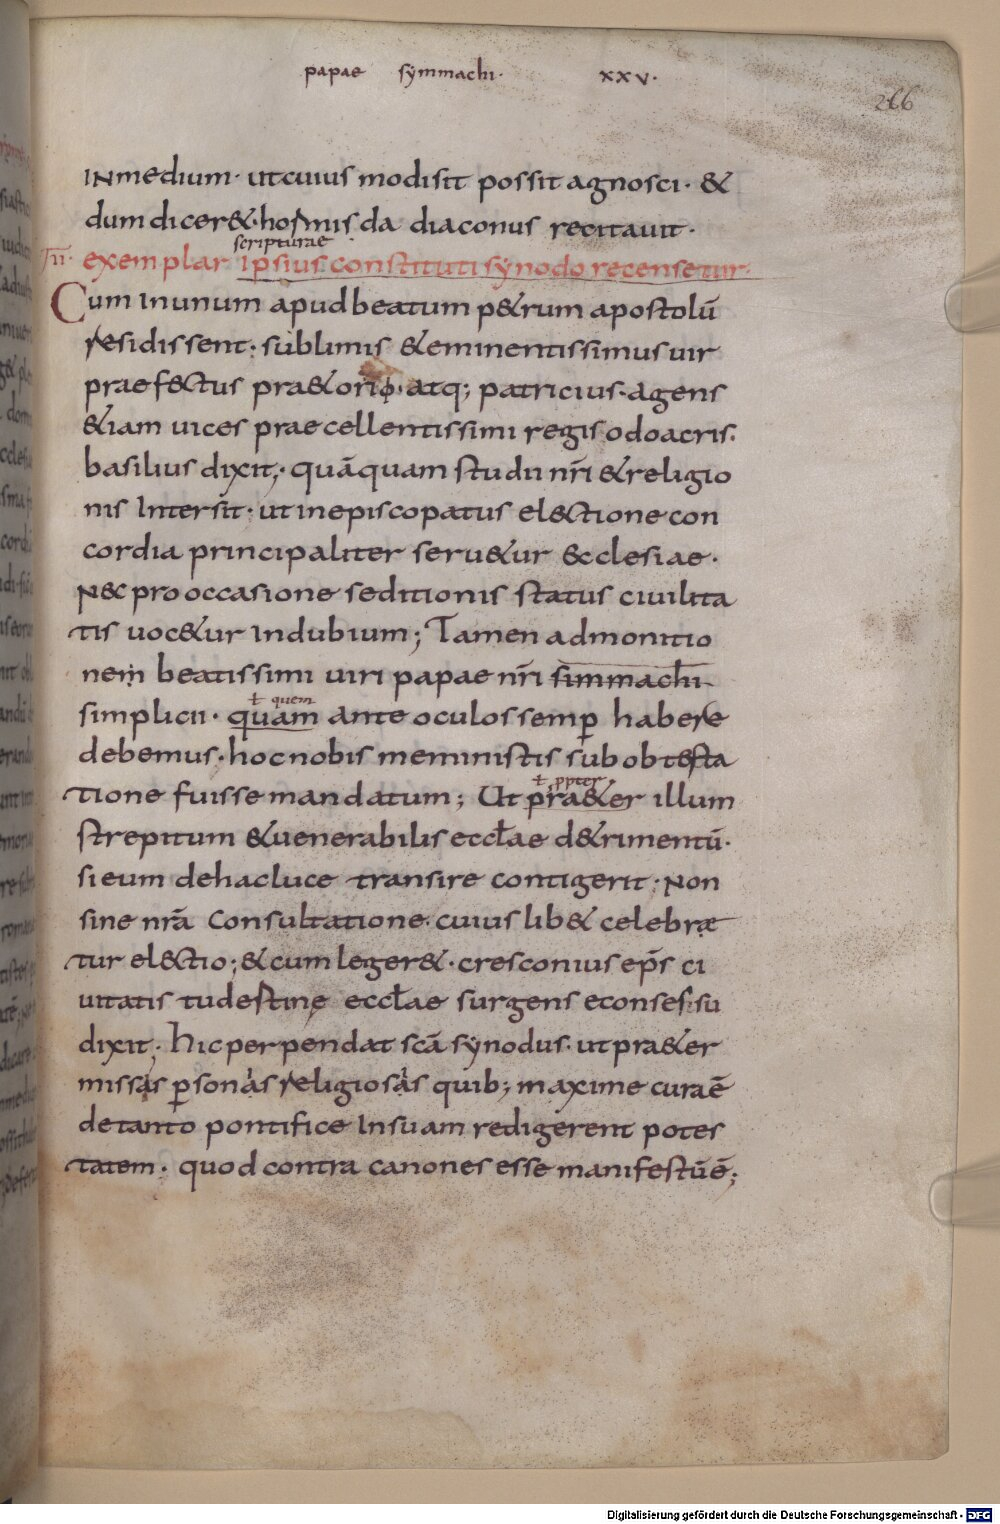 papae symmachi· xxv·
266
INmedium· utcuius modisit possit agnosci· &
dum dicer&· hormis da diaconus recitauit·
scripturae
exemplar ipsius constituti synodo recensetur·
Cum inunum apud beatum p&rum apostolū
residissent· sublimis &eminentissimus uir
praefectus pra&orio· atq; patricius· agens
&iam uices praecellentissimi regis odoacris·
basilius dixit; quāquam studii nr̄i &religio
nis Intersit· ut inepiscopatus electione con
cordia principaliter seru&ur &cclesiae·
N&c pro occasione seditionis status ciuilita
tis uoc&ur Indubium; Tamen admonitio
nem beatissimi uiri papae nr̄i simmachi
ł quem
simplicii· quam ante oculos semp̱ habere
debemus· hoc nobis meministis sub obtesta
ł ppter
tione fuisse mandatum; Ut pra&er illum
strepitum &uenerabilis eccłae d&rimentū·
si eum dehacluce transire contigerit· Non
sine nr̄a Consultatione· cuius lib& celebrae
tur electio; &cum leger&· cresconius ep̄s ci
uitatis tudestine eccłae surgens econsessu
dixit· Hic perpendat scā synodus· ut pra&er
missas p̱sonas religiosas quib; maxime curaē
de tanto pontifice Insuam redigerent potes
tatem· quod contra canones esse manifestūē;
Digitalisierung gefördert durch die Deutsche Forschungsgemeinschaft - DFG